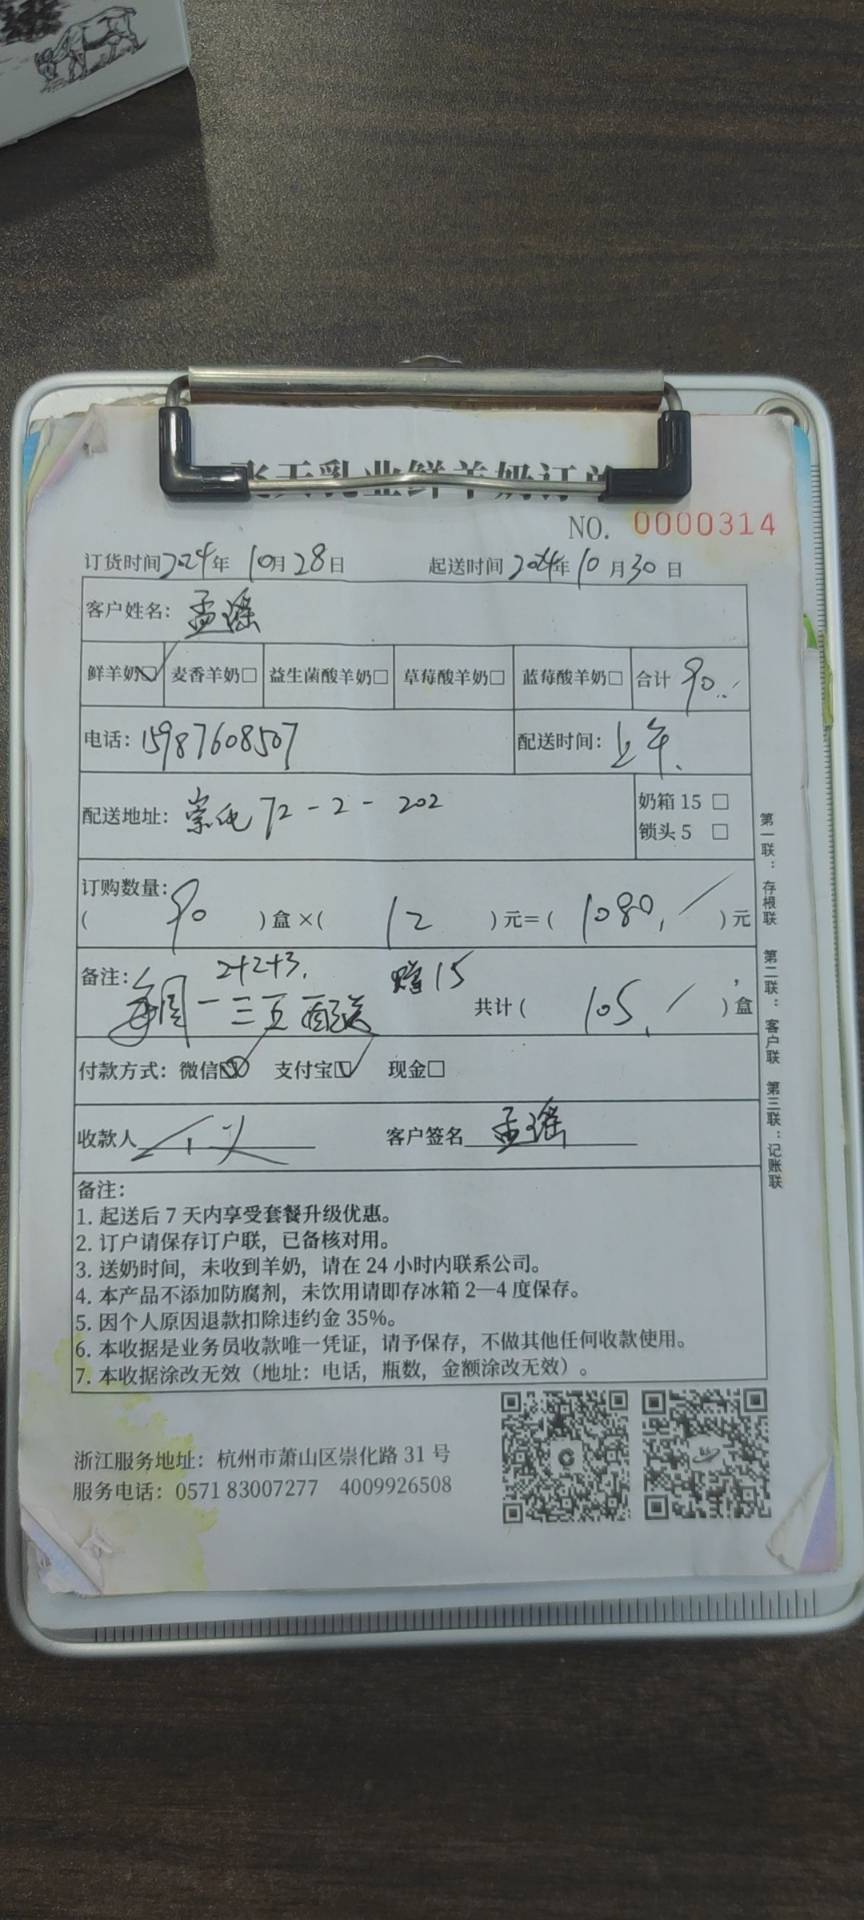 飞天乳业鲜羊奶订单
NO. 0000314
订货时间2024年 10月28日 起送时间2024年10月30日
客户姓名：孟瑶
鲜羊奶☑ 麦香羊奶□ 益生菌酸羊奶□ 草莓酸羊奶□ 蓝莓酸羊奶□ 合计 90
电话：15987608507 配送时间：上午
配送地址：崇化72-2-202 奶箱 15 □
锁头 5 □
订购数量：
( 90 ) 盒 ×( 12 ) 元＝( 1080 ) 元
备注： 2+2+3. 赠15
每周一三五配送 共计 ( 105 ) 盒
付款方式：微信☑ 支付宝☑ 现金□
收款人 客户签名 孟瑶
备注：
1. 起送后 7 天内享受套餐升级优惠。
2. 订户请保存订户联，已备核对用。
3. 送奶时间，未收到羊奶，请在 24 小时内联系公司。
4. 本产品不添加防腐剂，未饮用请即存冰箱 2—4 度保存。
5. 因个人原因退款扣除违约金 35%。
6. 本收据是业务员收款唯一凭证，请予保存，不做其他任何收款使用。
7. 本收据涂改无效（地址：电话，瓶数，金额涂改无效）。
第一联：存根联 第二联：客户联 第三联：记账联
浙江服务地址：杭州市萧山区崇化路 31 号
服务电话：0571 83007277 4009926508